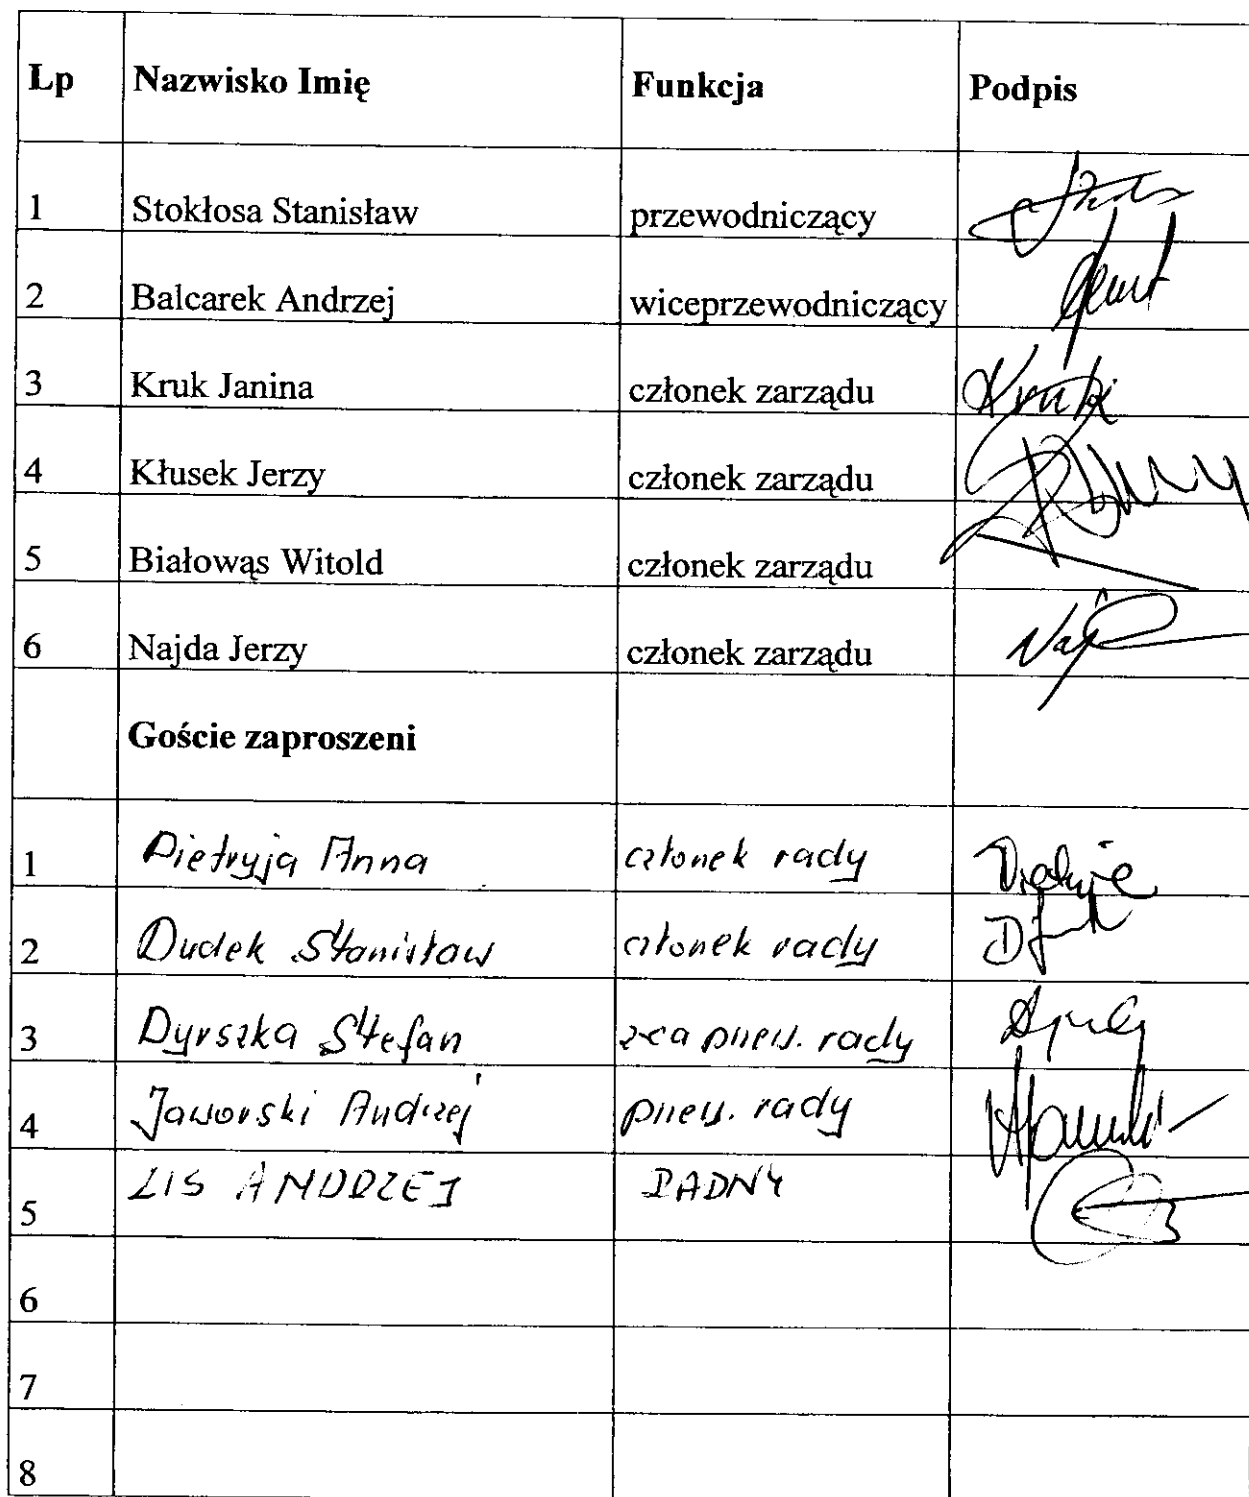 Lp Nazwisko Imię Funkcja Podpis
1 Stokłosa Stanisław przewodniczący
2 Balcarek Andrzej wiceprzewodniczący
3 Kruk Janina członek zarządu Kruk
4 Kłusek Jerzy członek zarządu
5 Białowąs Witold członek zarządu
6 Najda Jerzy członek zarządu
Goście zaproszeni
1 Pietryja Anna członek rady
2 Dudek Stanisław członek rady
3 Dyrszka Stefan z-ca przew. rady
4 Jaworski Andrzej przew. rady
5 LIS ANDRZEJ RADNY
6
7
8